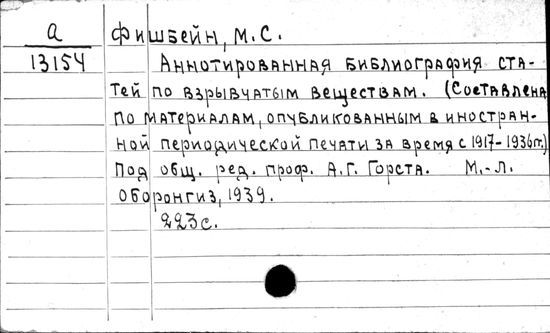 а Фишбейн, М.С.
13154 Аннотированная библиография ста-
тей по взрывчатым веществам. (Составлена
по материалам, опубликованным в иностран-
ной периодической печати за время с 1917-1936гг.)
Под общ. ред. проф. А.Г. Горста. М.-Л.
Оборонгиз, 1939.
223с.